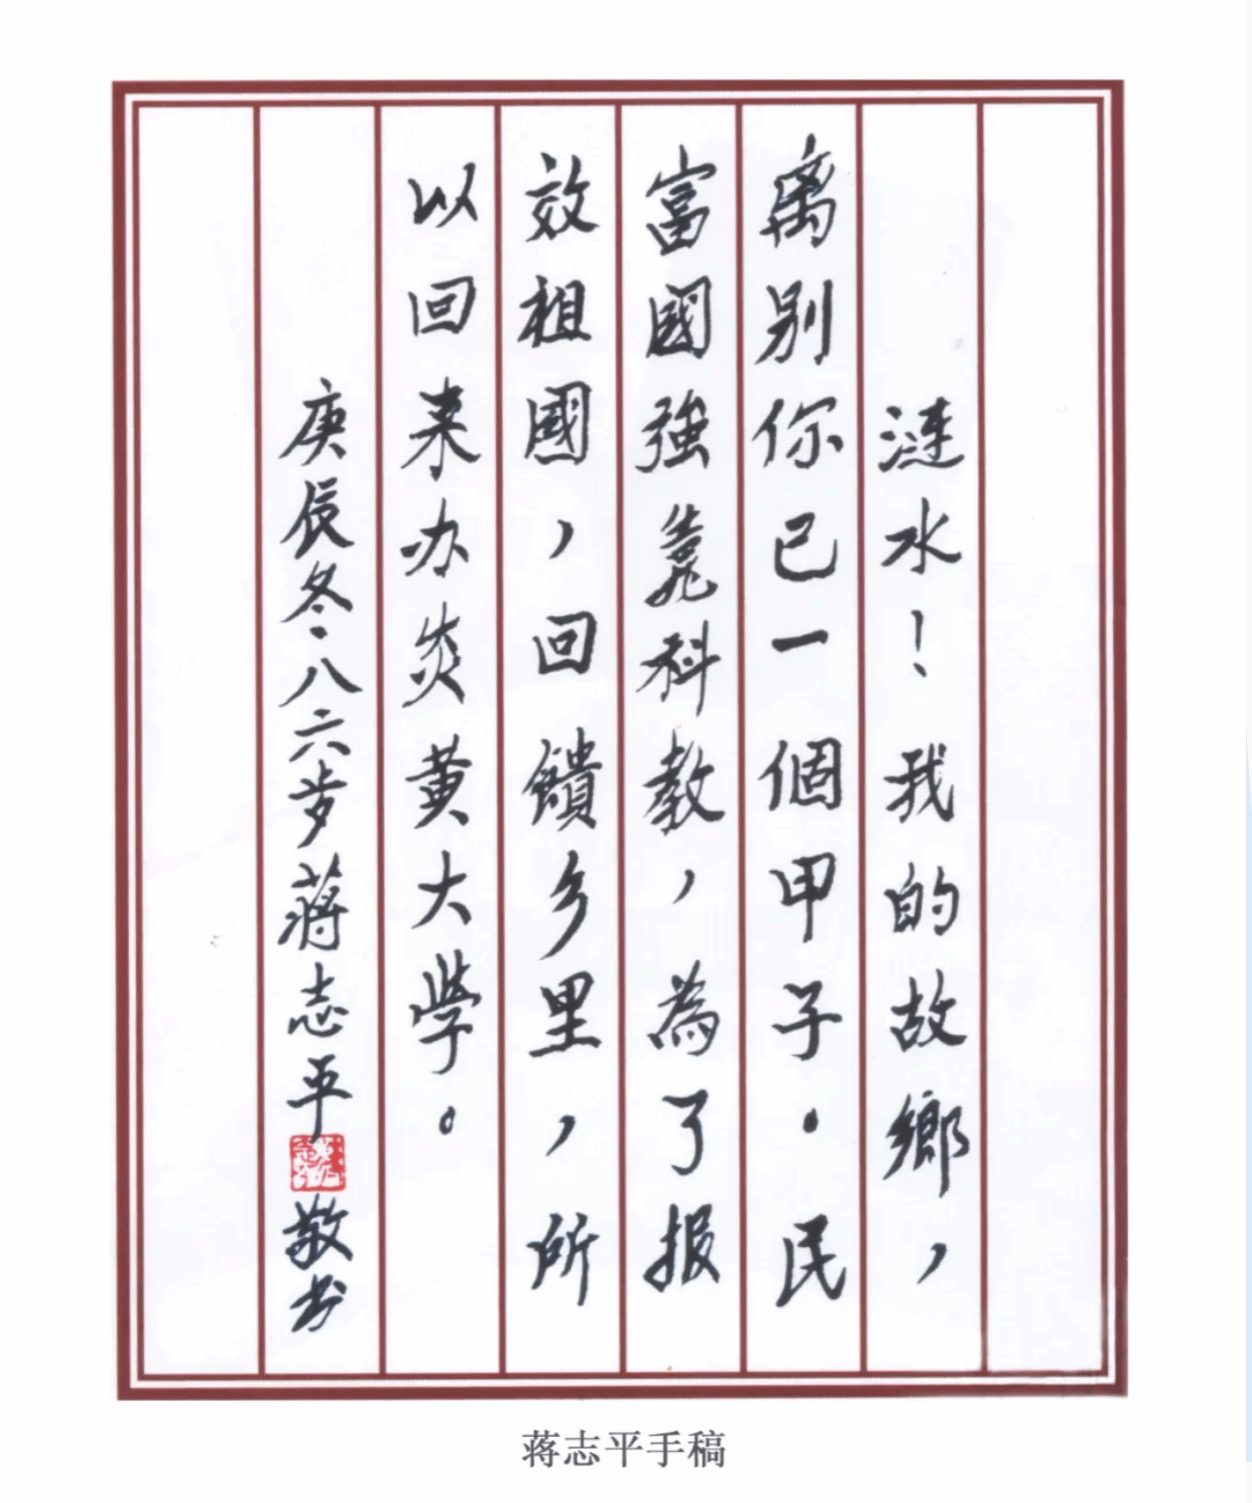 涟水！我的故鄉，
离别你已一個甲子．民
富國強靠科教，為了报
效祖國，回饋乡里，所
以回来办炎黄大學。
庚辰冬·八六岁蒋志平
敬书
蒋志平手稿